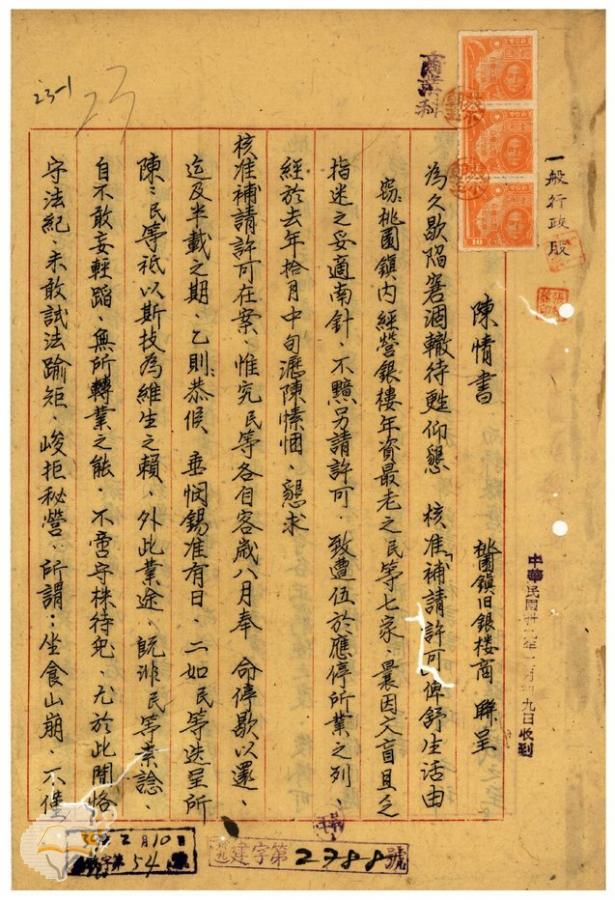 一般行政股
商業科
23-1
23
陳情書　桃園鎮旧銀楼商　聯呈
為久歇陷窘涸轍待甦仰懇　核准補請許可俾舒生活由
竊桃園鎮内經營銀楼年資最老之民等七家、曩因文盲且乏
指迷之妥適南針、不黯另請許可、致遭伍於應停所業之列、
經於去年拾月中旬瀝陳愫悃、懇求
核准補請許可在案、惟究民等各自客歲八月奉　命停歇以還、
迄及半載之期、乙則恭候　垂憫錫准有日、二如民等迭呈所
陳：民等祇以斯技為維生之賴、外此業途、既非民等業諗、
自不敢妄輕蹈、無所轉業之能、不啻守株待兎、尤於此間恪
守法紀、未敢試法踰矩、峻拒秘營、所謂：坐食山崩、不僅
中華民國 年 月 九日收到
2月10日
字第54號
建字第2788號
10